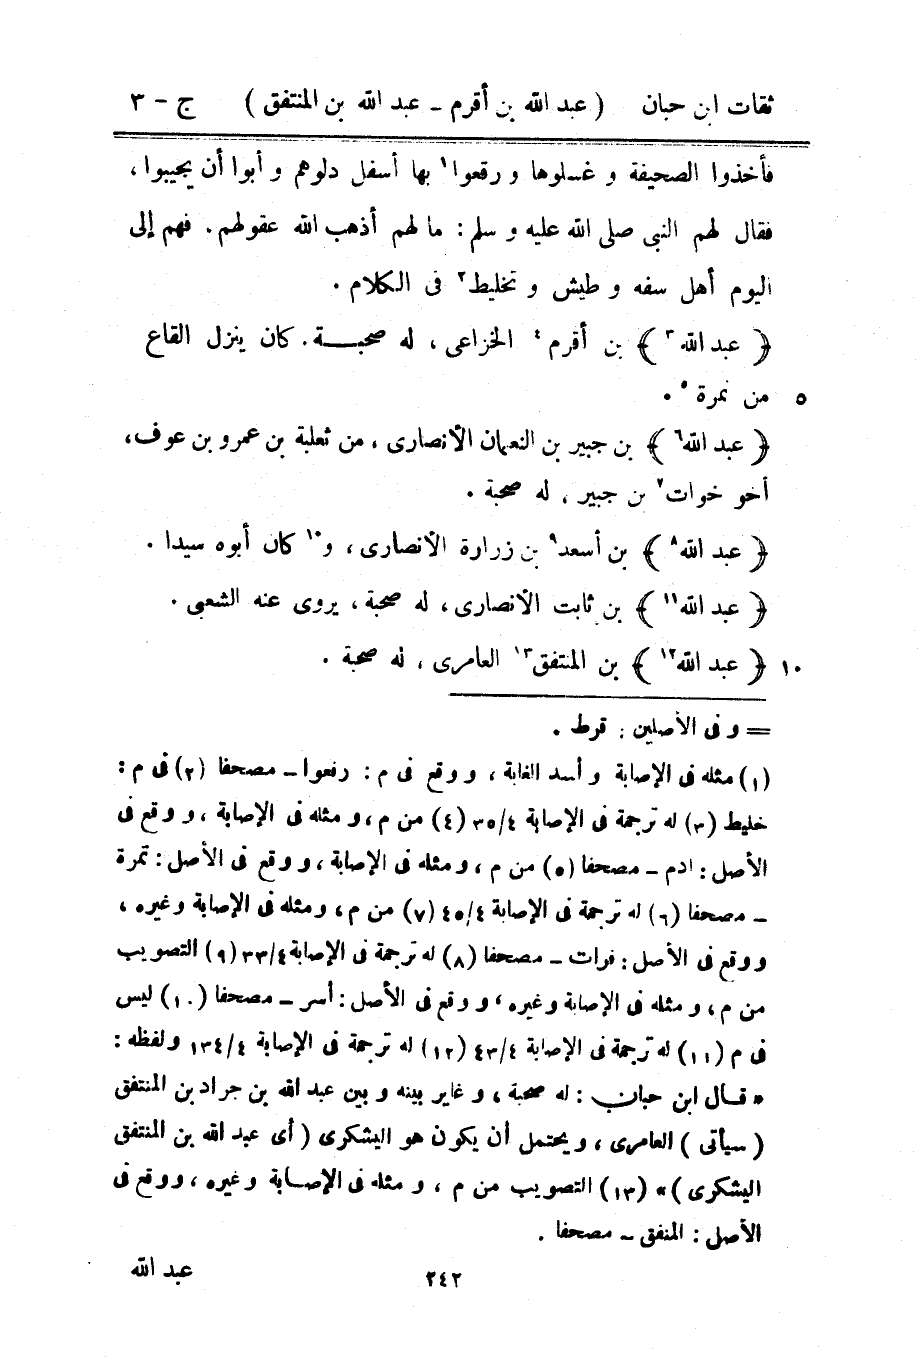 ثقات ابن حبان ( عبد الله بن أقرم ــ عبد الله بن المنتفق ) ج – ٣
فأخذوا الصحيفة و غسلوها و رقعوا١ بها أسفل دلوهم و أبوا أن يجيبوا ،
فقال لهم النبى صلى الله عليه و سلم : ما لهم أذهب الله عقولهم . فهم إلى
اليوم أهل سفه و طيش و تخليط٢ فى الكلام .
﴿ عبد الله٣ ﴾ بن أقرم٤ الخزاعى ، له صحبة . كان ينزل القاع
٥ من نمرة٥ .
﴿ عبد الله٦ ﴾ بن جبير بن النعمان الأنصارى ، من ثعلبة بن عمرو بن عوف ،
أخو خوات٧ بن جبير ، له صحبة .
﴿ عبد الله٨ ﴾ بن أسعد٩ بن زرارة الأنصارى ، و١٠ كان أبوه سيدا .
﴿ عبد الله١١ ﴾ بن ثابت الأنصارى ، له صحبة ، يروى عنه الشعبى .
١٠ ﴿ عبد الله١٢ ﴾ بن المنتفق١٣ العامرى ، له صحبة .
= و فى الأصلين : قرط .
(١) مثله فى الإصابة و أسد الغابة ، و وقع فى م : رفعوا ــ مصحفا (٢) فى م :
خليط (٣) له ترجمة فى الإصابة ٤/٣٥ (٤) من م ، و مثله فى الإصابة ، و وقع فى
الأصل : ادم ــ مصحفا (٥) من م ، و مثله فى الإصابة ، و وقع فى الأصل : تمرة
ــ مصحفا (٦) له ترجمة فى الإصابة ٤/٤٥ (٧) من م ، و مثله فى الإصابة وغيره ،
و وقع فى الأصل : فرات ــ مصحفا (٨) له ترجمة فى الإصابة ٤/٣٣ (٩) التصويب
من م ، و مثله فى الإصابة وغيره ، و وقع فى الأصل : أسر ــ مصحفا (١٠) ليس
فى م (١١) له ترجمة فى الإصابة ٤/٤٣ (١٢) له ترجمة فى الإصابة ٤/١٣٤ و لفظه :
« قال ابن حبان : له صحبة ، و غاير بينه و بين عبد الله بن جراد بن المنتفق
( سيأتى ) العامرى ، و يحتمل أن يكون هو اليشكرى ( أى عبد الله بن المنتفق
اليشكرى ) » (١٣) التصويب من م ، و مثله فى الإصابة و غيره ، و وقع فى
الأصل : المنفق ــ مصحفا .
٢٤٢ عبد الله